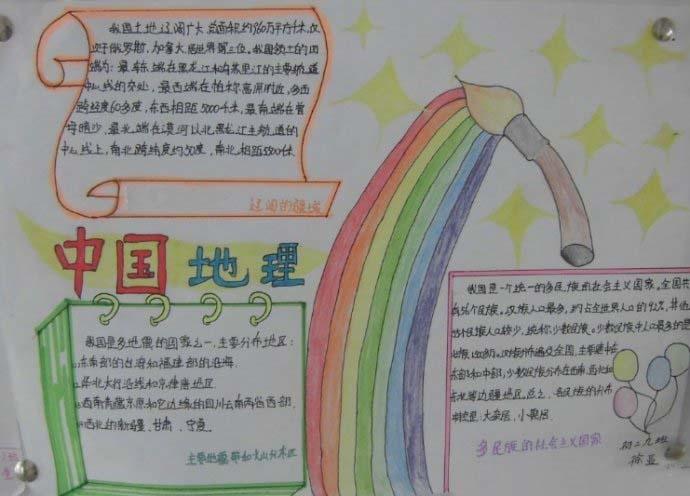 我国土地辽阔广大,总面积约960万平方千米,仅
次于俄罗斯,加拿大,居世界第三位。我国领土的四
端为:最东端在黑龙江和乌苏里江的主航道
中心线的交处,最西端在帕米尔高原附近,东西
跨经度60多度,东西相距5000千米,最南端在曾
母暗沙,最北端在漠河以北黑龙江主航道的
中心线上,南北跨纬度约50度,南北相距5500千米
辽阔的疆域
中国地理
我国是多地震的国家之一,主要分布地区:
东南部的台湾和福建部的沿海
华北太行沿线和京津唐地区
西南青藏高原和它边缘的四川云南两省西部
西北的新疆、甘肃、宁夏
主要地震带和火山分布区
我国是一个统一的多民族的社会主义国家。全国共
有56个民族。汉族人口最多,约占全世界人口的92%,其他
55个民族人口较少,统称少数民族。少数民族中人口最多的是
壮族,1600多万。汉族分布遍及全国,主要集中在
东部和中部,少数民族分布在西南、西北和
东北等边疆地区。总之,各民族的分布
特点是:大杂居、小聚居。
多民族的社会主义国家
初二九班
徐亚